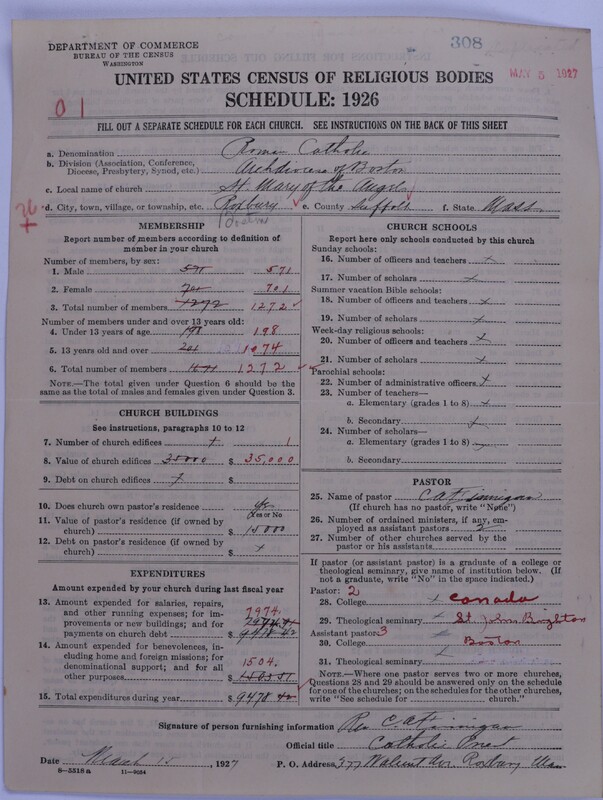 308
DEPARTMENT OF COMMERCE
BUREAU OF THE CENSUS
WASHINGTON
MAY 5 1927
UNITED STATES CENSUS OF RELIGIOUS BODIES
SCHEDULE: 1926
01
FILL OUT A SEPARATE SCHEDULE FOR EACH CHURCH. SEE INSTRUCTIONS ON THE BACK OF THIS SHEET
a. Denomination Roman Catholic
b. Division (Association, Conference, Diocese, Presbytery, Synod, etc.) Archdiocese of Boston
c. Local name of church St. Mary of the Angels
d. City, town, village, or township, etc. Roxbury e. County Suffolk f. State Mass
Boston
MEMBERSHIP
Report number of members according to definition of member in your church
Number of members, by sex:
1. Male 571 571
2. Female 701 701
3. Total number of members 1272 1272
Number of members under and over 13 years old:
4. Under 13 years of age 198 198
5. 13 years old and over 1074
6. Total number of members 1272
NOTE.—The total given under Question 6 should be the same as the total of males and females given under Question 3.
CHURCH BUILDINGS
See instructions, paragraphs 10 to 12
7. Number of church edifices 1
8. Value of church edifices 35000 $ 35,000
9. Debt on church edifices $
10. Does church own pastor's residence? Yes
Yes or No
11. Value of pastor's residence (if owned by church) $ 15000
12. Debt on pastor's residence (if owned by church) $ x
EXPENDITURES
Amount expended by your church during last fiscal year
13. Amount expended for salaries, repairs, and other running expenses; for improvements or new buildings; and for payments on church debt $ 7974.
14. Amount expended for benevolences, including home and foreign missions; for denominational support; and for all other purposes $ 1504.
15. Total expenditures during year $ 9478
CHURCH SCHOOLS
Report here only schools conducted by this church
Sunday schools:
16. Number of officers and teachers x
17. Number of scholars x
Summer vacation Bible schools:
18. Number of officers and teachers x
19. Number of scholars x
Week-day religious schools:
20. Number of officers and teachers x
21. Number of scholars x
Parochial schools:
22. Number of administrative officers x
23. Number of teachers—
a. Elementary (grades 1 to 8) x
b. Secondary x
24. Number of scholars—
a. Elementary (grades 1 to 8)
b. Secondary
PASTOR
25. Name of pastor C A Finnigan
(If church has no pastor, write "None")
26. Number of ordained ministers, if any, employed as assistant pastors 2
27. Number of other churches served by the pastor or his assistants
If pastor (or assistant pastor) is a graduate of a college or theological seminary, give name of institution below. (If not a graduate, write "No" in the space indicated.)
Pastor: 2
28. College Canada
29. Theological seminary St. Johns Brighton
Assistant pastor: 3
30. College Boston
31. Theological seminary
NOTE.—Where one pastor serves two or more churches, Questions 28 and 29 should be answered only on the schedule for one of the churches; on the schedules for the other churches, write "See schedule for church."
Signature of person furnishing information Rev C. A. Finnigan
Official title Catholic Priest
Date March 15, 1927 P. O. Address 377 Walnut Ave. Roxbury Mass
8—5518 a 11—9024